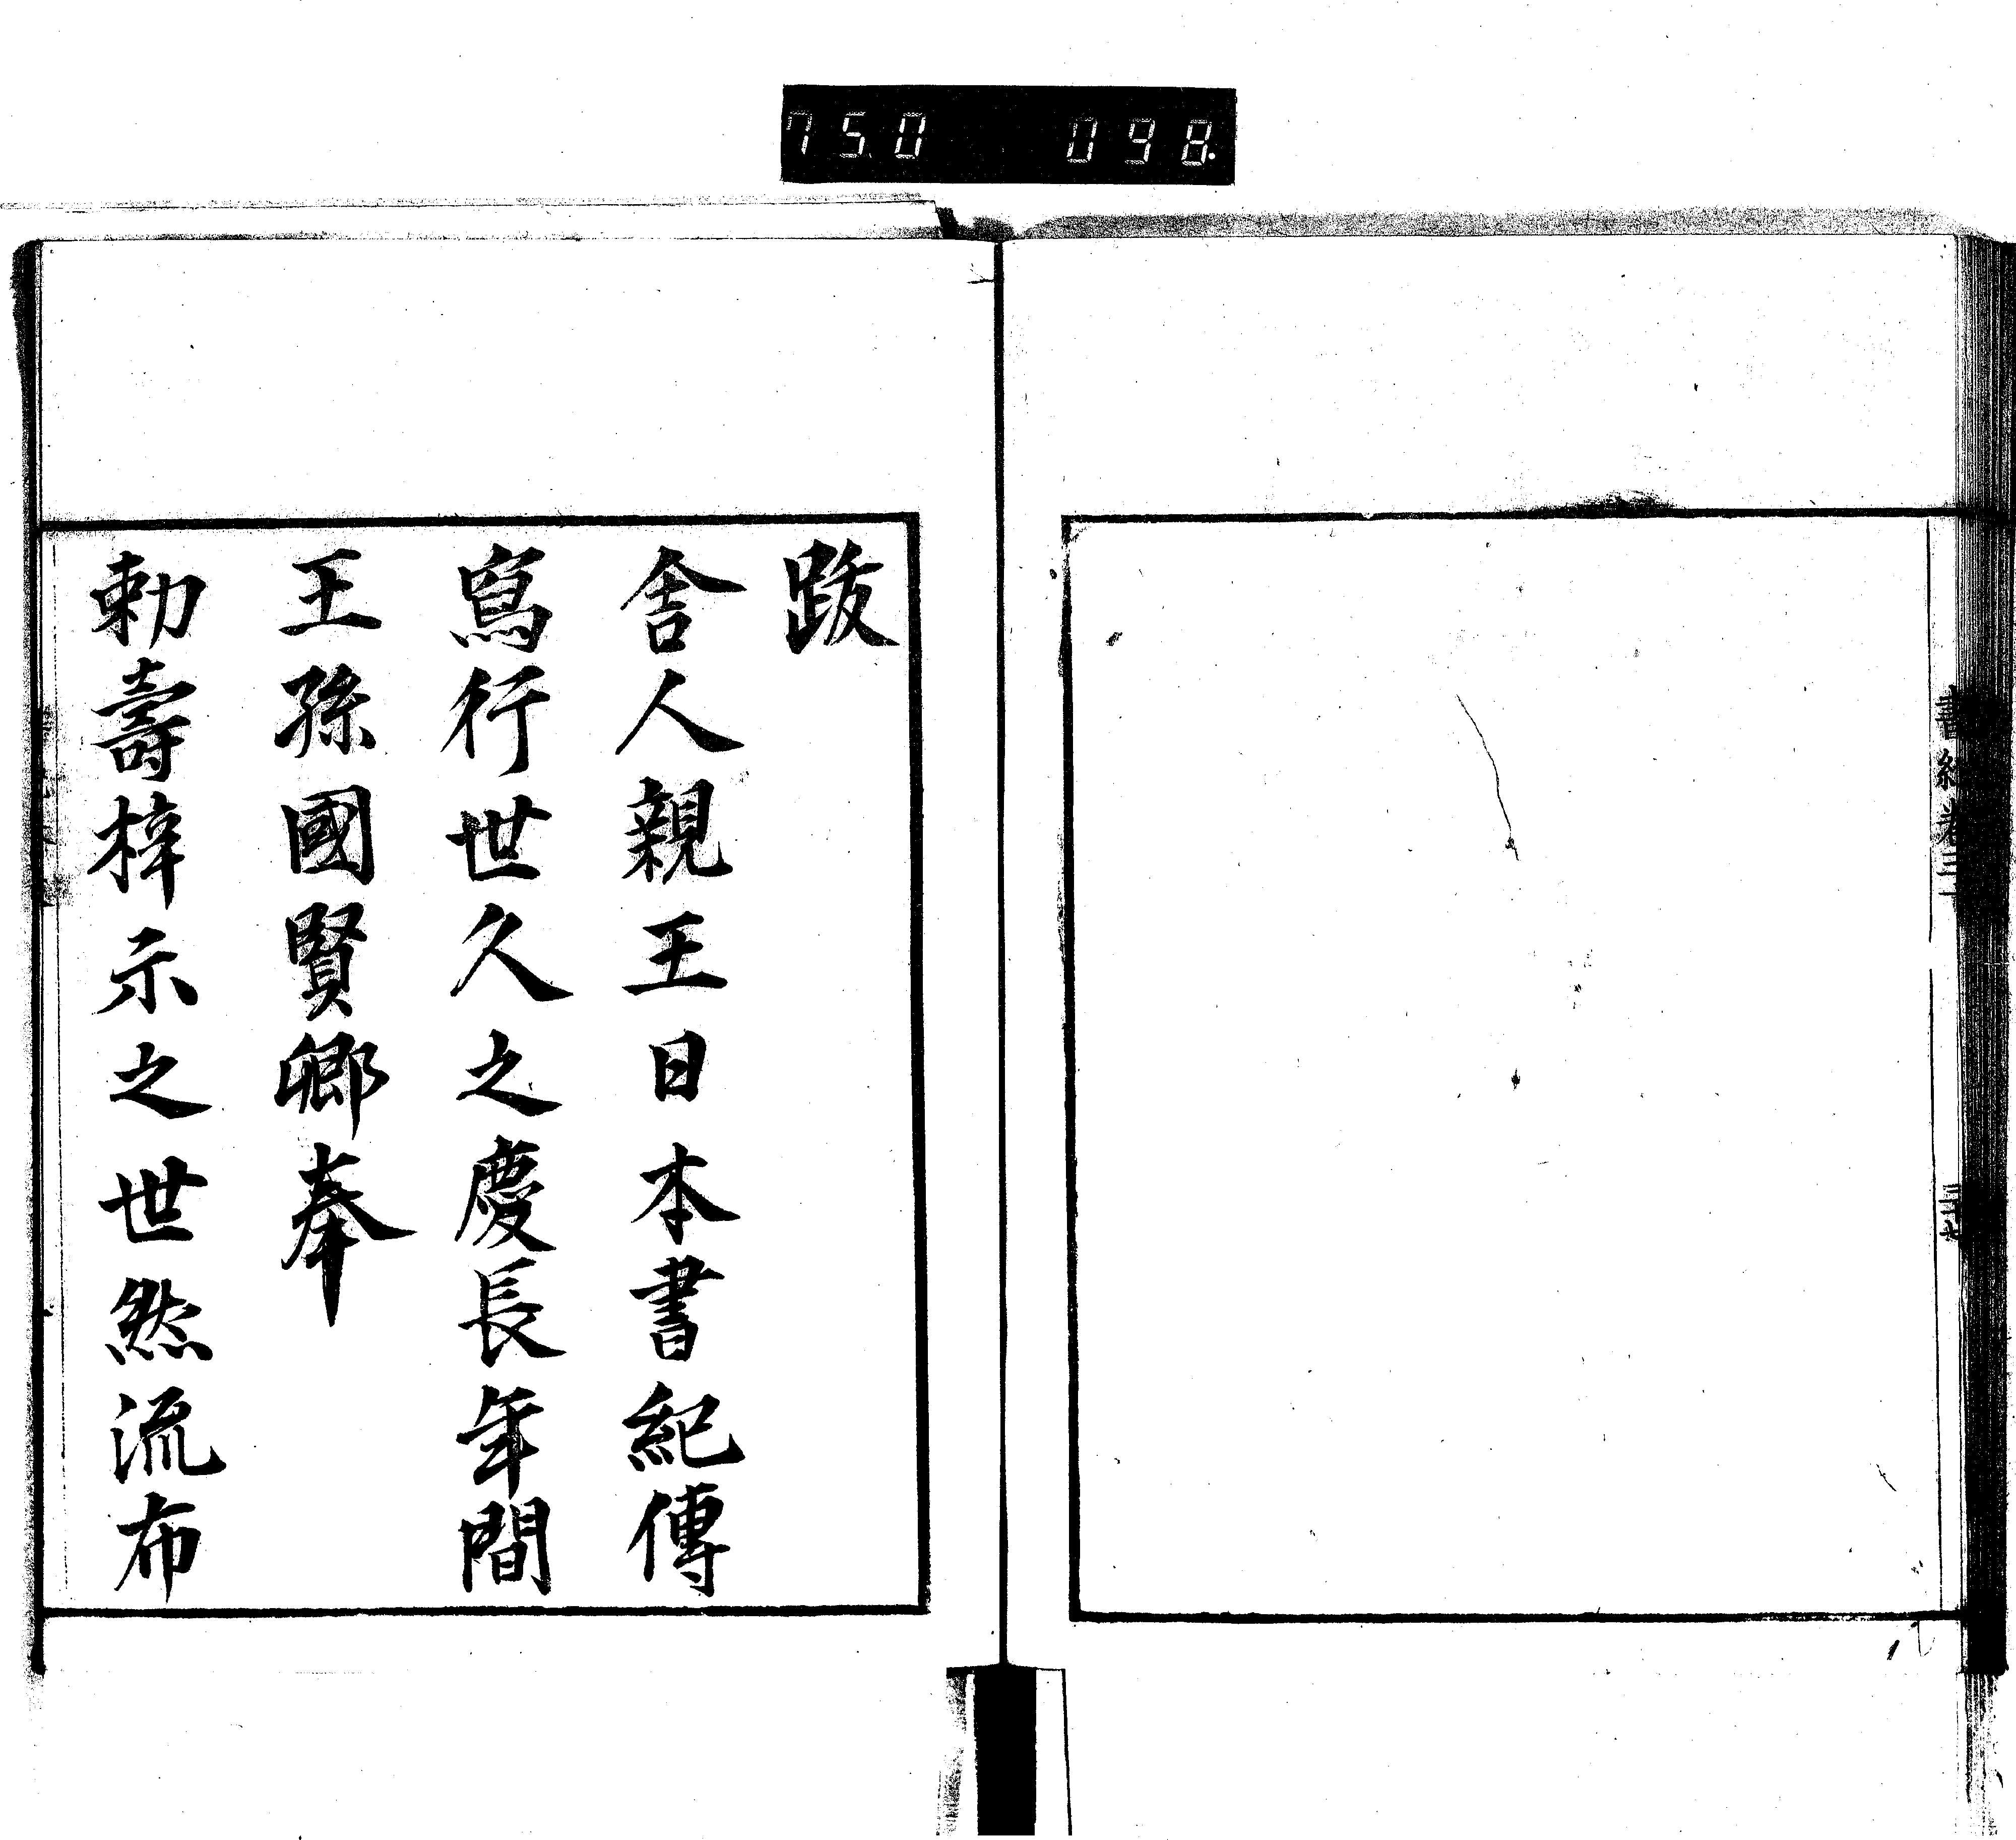 750 098.
書紀卷三十
三十七
跋
舎人親王日本書紀傳
寫行世久之慶長年間
王孫國賢卿奉
勅壽梓示之世然流布